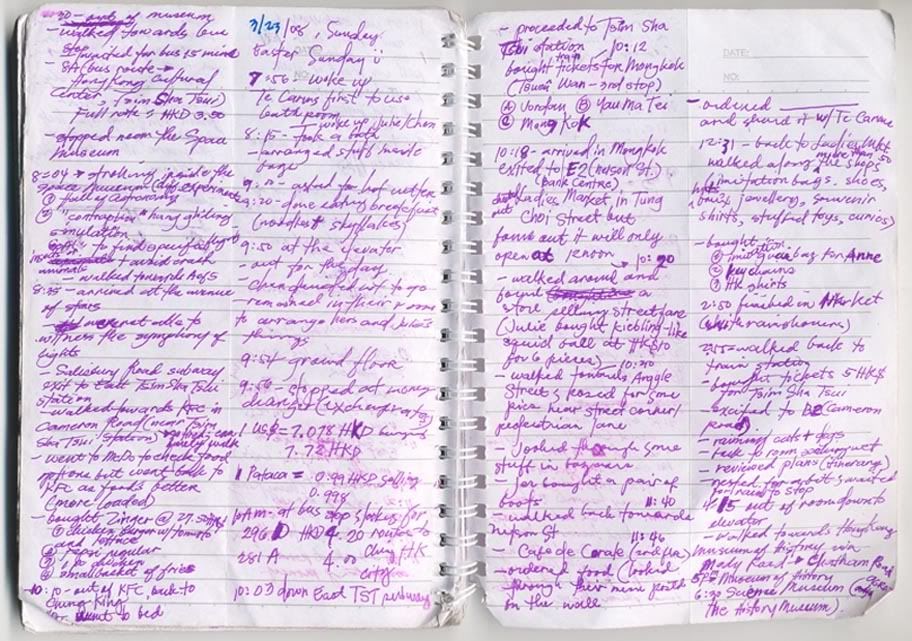 museum
- walked towards bus
stop
- waited for bus 15 mins
- 8A (bus route →
Hongkong Cultural
Center, Tsim Sha Tsui)
Full rate = HKD 3.50
- stopped near the Space
Museum
8:04 → strolling inside the
space museum
① full of astronomy
② "contraption" hang gliding
simulation
to find
+ avoid crash
- walked towards AofS
8:35 - arrived at the avenue
of stars
- were not able to
witness the symphony of
lights
- Salisbury Road subway
exit to East Tsim Sha Tsui
station
- walked towards KFC in
Cameron Road (near Tsim
Sha Tsui Station)
- went to McDo to check food
options but went back to
KFC as food's better
(more loaded)
- bought Zinger @ 27.50
① chicken burger w/ tomato
and lettuce
② Pepsi regular
③ 1 pc chicken
④ small basket of fries
10:10 - out of KFC, back to
Chung King
went to bed
3/23/08, Sunday
Easter Sunday
7:56 - woke up
Te Carins first to use
bathroom
wake up Julie/Chon
8:15 - Took a bath
- arranged stuff inside
bags
9:10 - asked for hot water
9:20 - done eating breakfast
(noodles + skyflakes)
9:50 at the elevator
- out for the day
- remained in their room
to arrange hers and Julie's
things
9:54 ground floor
9:56 - stopped at money
changer (exchange rate)
1 US$ = 7.078 HKD buying
7.72 HKD
1 Pataca = 0.99 HKD selling
0.998
10AM - at bus stop looking for
296 D HKD 4.20 route to
281 A 4.00 Chung HK
city
10:03 down East TST subway
- proceeded to Tsim Sha
Tsui station 10:12
bought train tickets for Mongkok
(Tsuen Wan - 3rd stop)
Ⓐ Jordan Ⓑ Yau Ma Tei
Ⓒ Mong Kok
10:18 - arrived in Mongkok
exited to E2 (Nelson St.)
(Bank Centre)
Ladies Market in Tung
Choi Street but
found out it will only
open at 12noon → 10:20
- walked around and
found a
store selling street fare
(Julie bought kiebling-like
squid ball at HK$10
for 6 pieces) 10:30
- walked towards Argyle
Street & posed for some
pics near street corner/
pedestrian lane
- Looked through some
stuff in bazaars
- Jes bought a pair of
boots 11:40
- walked back towards
Nelson St 11:46
- Cafe de Coral (2nd flr)
- ordered food (looked
through their menu posted
on the wall
DATE:
NO:
- ordered
and shared it w/ Te Carine
12:31 - back to Ladies Mkt
walked along more than 50 shops
(imitation bags, shoes,
hats, jewellery, souvenir
shirts, stuffed toys, curios)
- bought
① imitation bag for Anne
② keychains
③ HK shirts
2:50 finished in Market
(white rainshowers)
2:55 - walked back to
train station
- bought tickets 5 HK$
for Tsim Sha Tsui
- exited to B2 Cameron
road
- raining cats + dogs
- back to room
- reviewed plans (itinerary)
- rested for a bit & waited
for rain to stop
4:15 out of room down to
elevator
- walked towards Hongkong
Museum of History via
Mody Road → Chatham Road
5PM Museum of History
6:30 Science Museum
The History Museum).